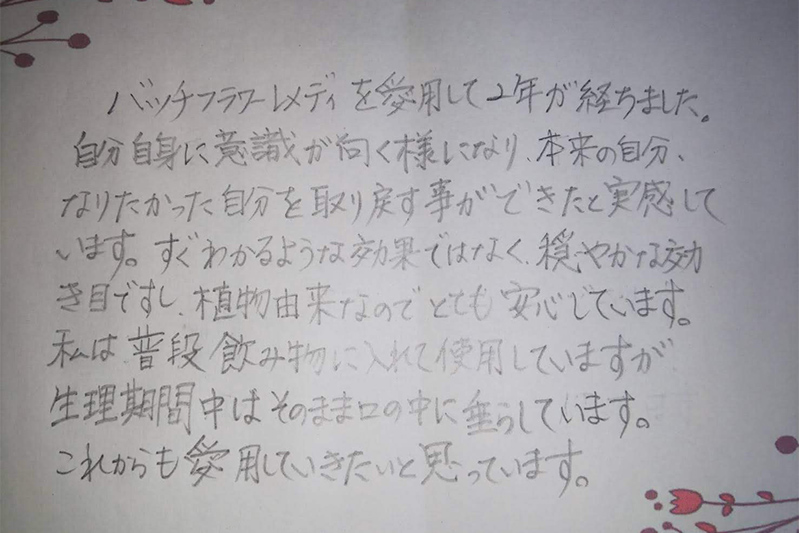 バッチフラワーレメディを愛用して2年が経ちました。
自分自身に意識が向く様になり、本来の自分、
なりたかった自分を取り戻す事ができたと実感して
います。すぐわかるような効果ではなく、穏やかな効
き目ですし、植物由来なのでとても安心しています。
私は、普段飲み物に入れて使用していますが
生理期間中はそのまま口の中に垂らしています。
これからも愛用していきたいと思っています。